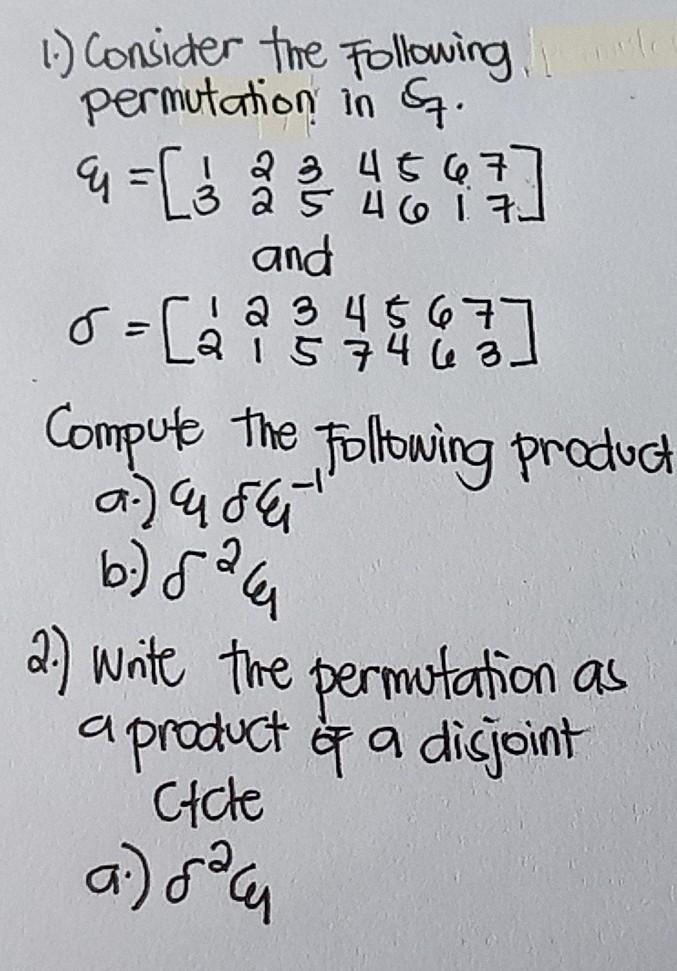 1.) Consider the Following
permutation in S7.
ξ = [1 2 3 4 5 6 7
3 2 5 4 6 1 7]
and
σ = [1 2 3 4 5 6 7
2 1 5 7 4 6 3]
Compute the Following product
a.) ξ σ ξ⁻¹
b.) σ² ξ
2.) Write the permutation as
a product of a disjoint
Cycle
a.) σ² ξ